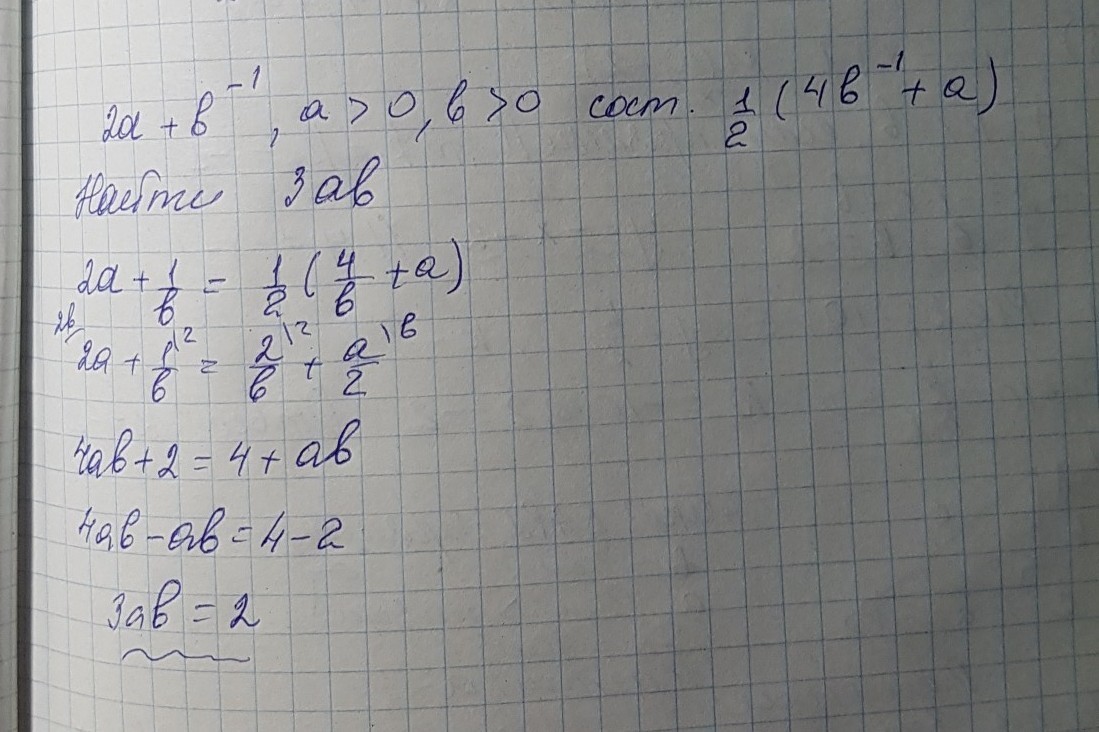 2a + b⁻¹, a > 0, b > 0 сост. 1/2 (4b⁻¹ + a)
Найти 3ab
2a + 1/b = 1/2 (4/b + a)
2b/ 2a + 1/b \2 = 2/b \2 + a/2 \b
4ab + 2 = 4 + ab
4ab - ab = 4 - 2
3ab = 2